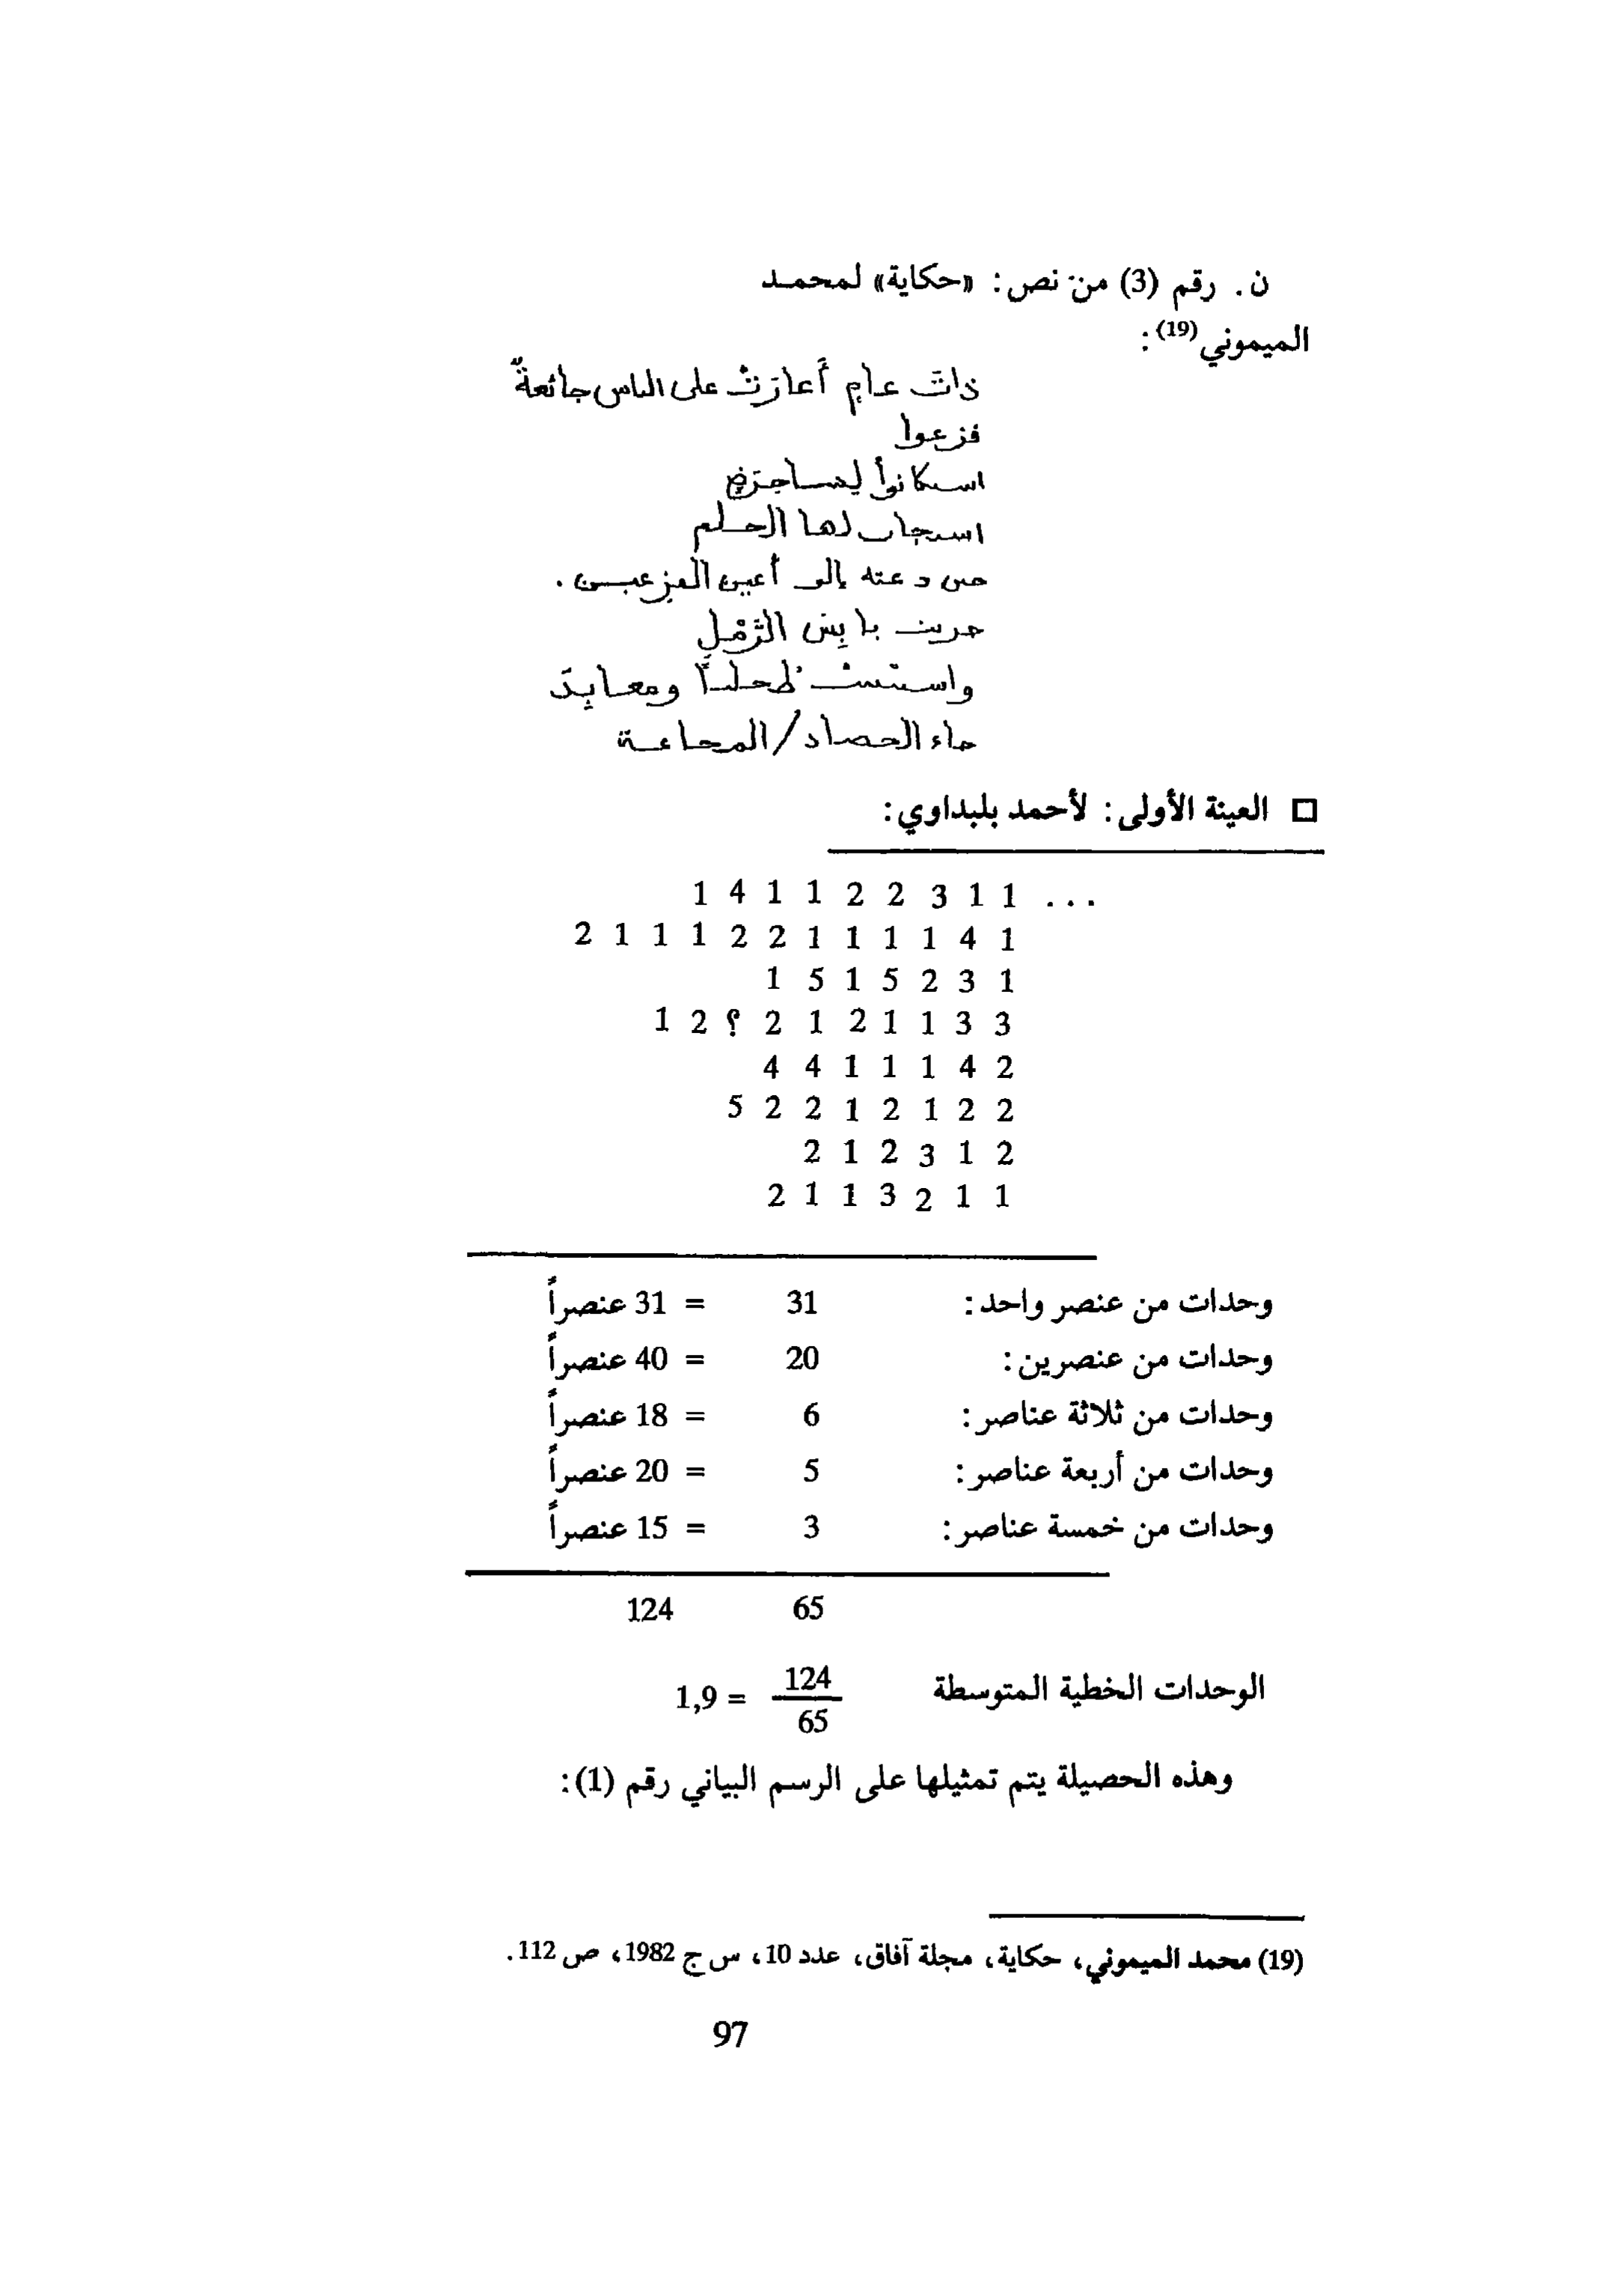 ن. رقم (3) من نص: «حكاية» لمحمد
الميموني(19):
ذاتَ عامٍ أَغارَتْ على الناس جائعةٌ
فزعوا
استكانوا لهـاجرةٍ
استجاب لها الحلم
حين دعته إلى أعين الفزعين.
حرين اليابس الرَّمْلِ
واستنبتتْ طحلباً ومعابِدَ
جاء الحصاد/المجاعة
□ العينة الأولى: لأحمد بلبداوي:
1 4 1 1 2 2 3 1 1 ...
2 1 1 1 2 2 1 1 1 1 4 1
1 5 1 5 2 3 1
1 2 ؟ 2 1 2 1 1 3 3
4 4 1 1 1 4 2
5 2 2 1 2 1 2 2
2 1 2 3 1 2
2 1 1 3 2 1 1
وحدات من عنصر واحد: 31 = 31 عنصراً
وحدات من عنصرين: 20 = 40 عنصراً
وحدات من ثلاثة عناصر: 6 = 18 عنصراً
وحدات من أربعة عناصر: 5 = 20 عنصراً
وحدات من خمسة عناصر: 3 = 15 عنصراً
65 124
الوحدات الخطية المتوسطة 124/65 = 1,9
وهذه الحصيلة يتم تمثيلها على الرسم البياني رقم (1):
(19) محمد الميموني، حكاية، مجلة آفاق، عدد 10، س ج 1982، ص 112.
97